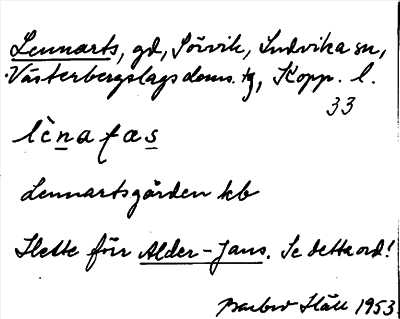 Lennarts, gd, Sörvik, Ludvika sn,
Västerbergslags doms. tg, Kopp. l.
33
lènafæs
Lennartsgården kb
Hette förr Alder-Jans. Se detta ord!
Ståhl 1953